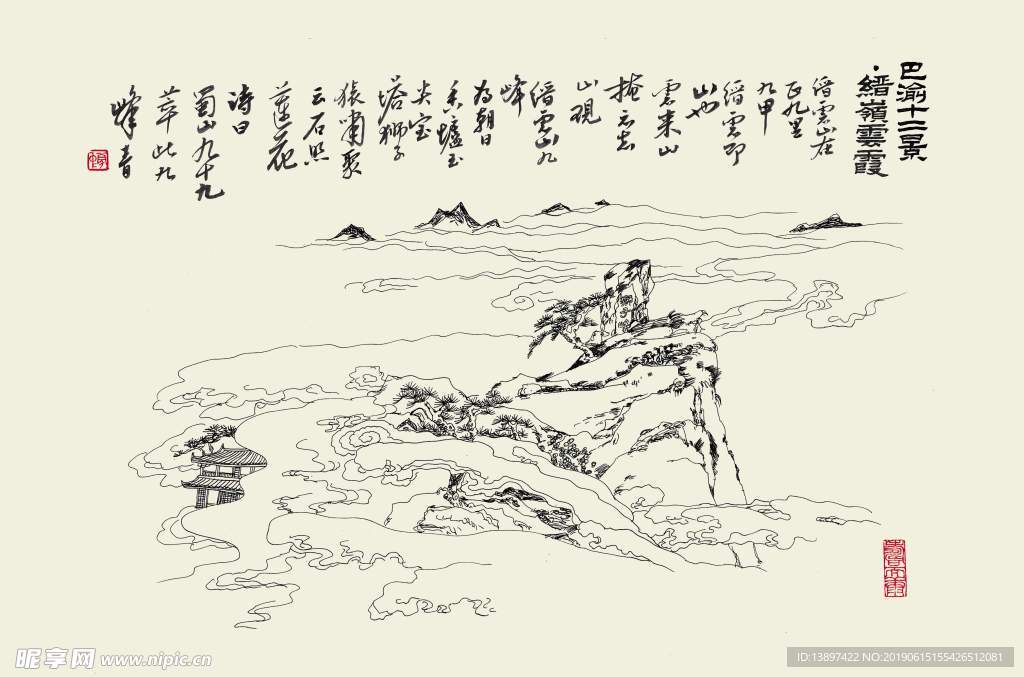 巴渝十二景
·縉嶺雲霞
缙雲山在
正北里
九甲
缙雲即
山也
雲来山
掩云去
山現
缙雲山九
峰
为朝日
香爐玉
尖宝
塔狮子
猿啸聚
云石照
莲花
诗曰
蜀山九十九
萃此九
峰青
昵享网 www.nipic.cn
ID:13897422 NO:20190615155426512081